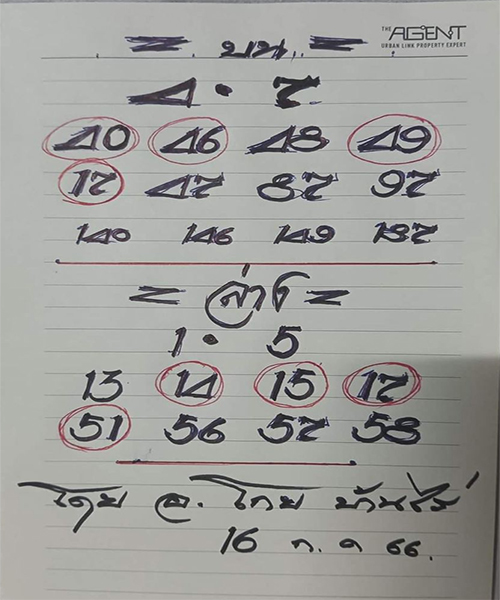 THE AGENT
URBAN LINK PROPERTY EXPERT
= บน =
4 · 7
40 46 48 49
17 47 87 97
140 146 149 187
= ล่าง =
1 · 5
13 14 15 17
51 56 57 58
โดย อ. ไก่ย บ้านไร่
16 ก.ค 66.